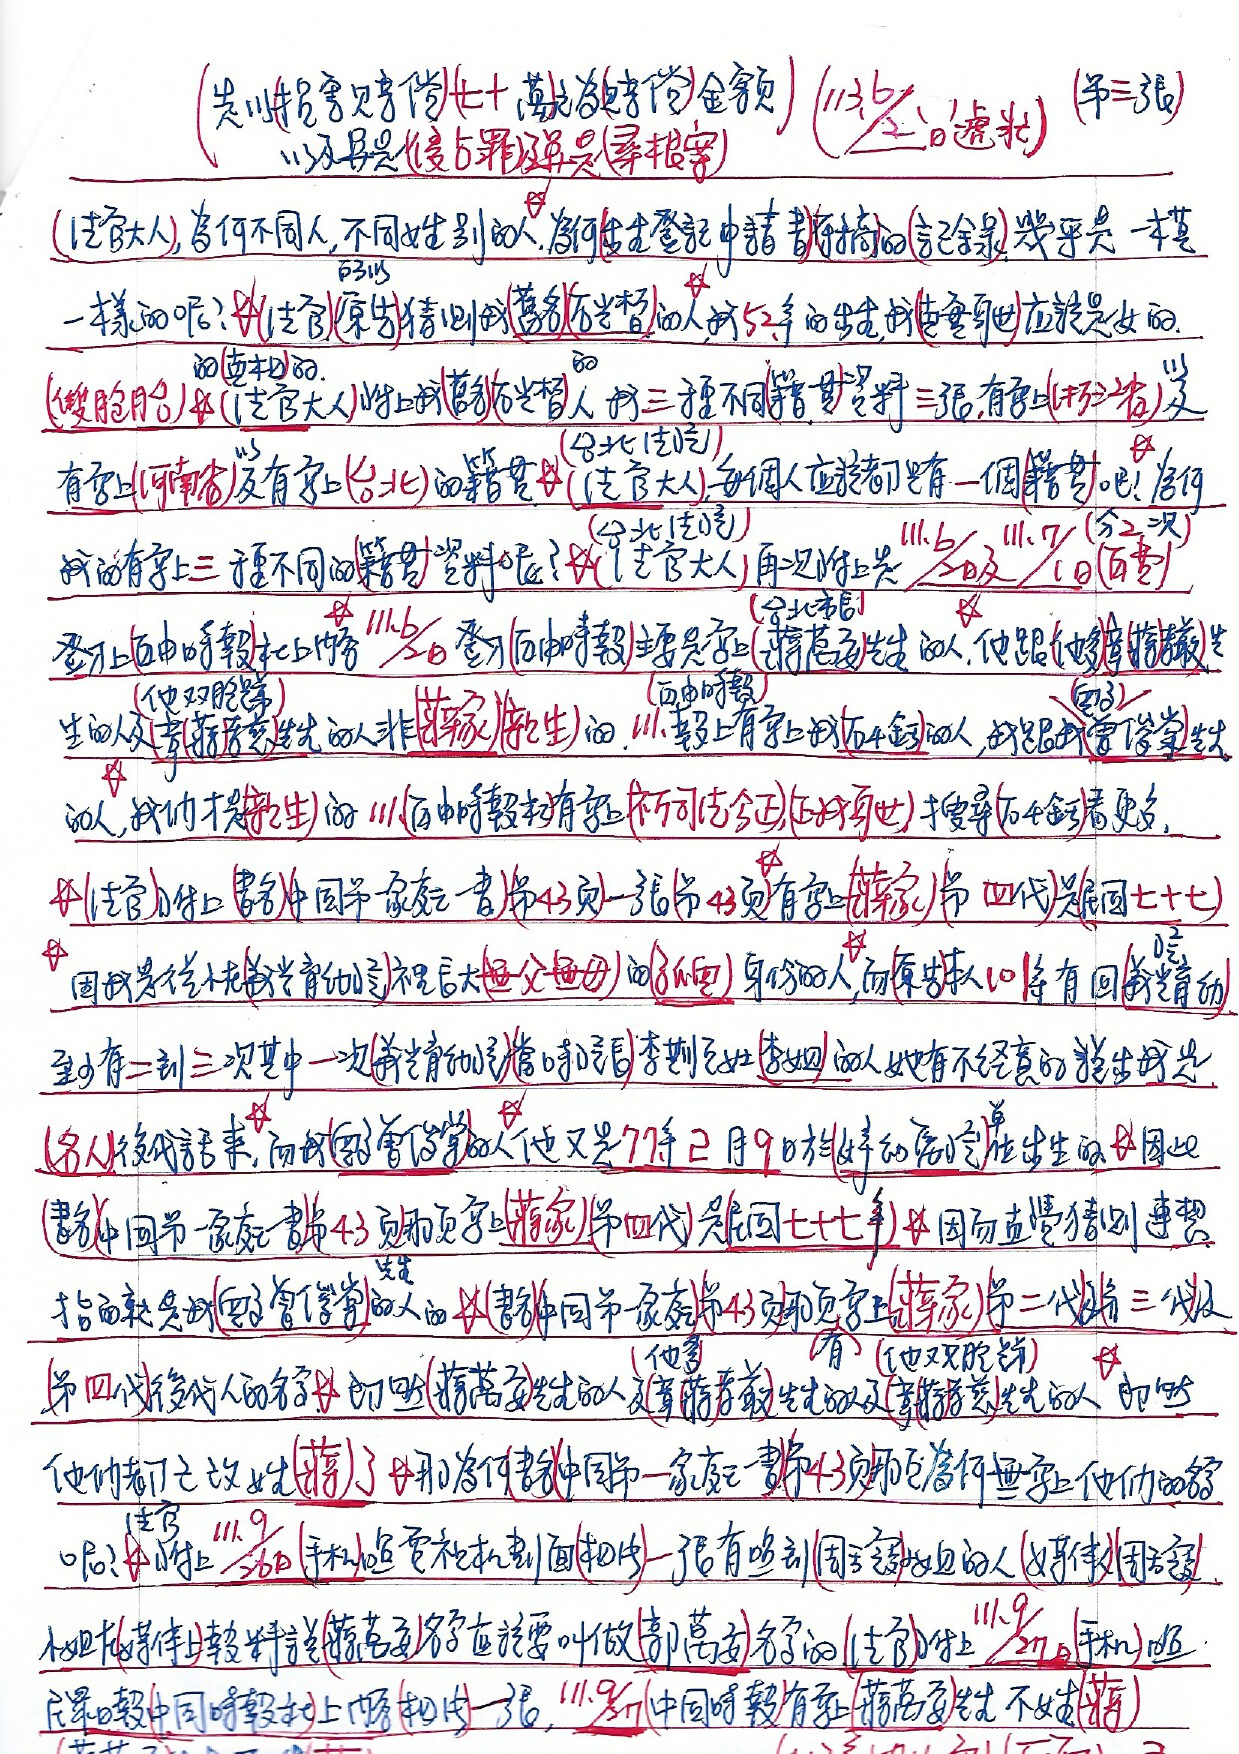 (先以(損害賠償)(七十萬元為賠償)金額) (113.6/21日遞狀) (第三張)
以及另是(侵占罪)及算是(尋根案)
(法官大人),為何不同人,不同姓別的人,為何(出生登記申請書)所摘的(記錄)幾乎是一本莫
所以
一樣的呢?(法官)(原告)猜測我(舊名)的人,我52年的出生,我(真實身世)應該是女的.
的(真相)的. 的 以
(雙胞胎)(法官大人)附上我(舊名)人 我三種不同(籍貫)資料三張,有寫上(浙江省)及
以 (台北法院)
有寫上(河南省)及有寫上(台北)的籍貫(法官大人),每個人應該都只有一個(籍貫)吧!為何
(台北法院) (分2次)
我的有寫上三種不同的(籍貫)資料呢?(法官大人)再次附上是111.6/2日及111.7/1日(自費)
(台北市長)
登刊上(自由時報)社上內容111.6/2日登刊(自由時報)主要是寫上(蔣萬安)先生的人,他跟(他爹章蔣孝嚴)先
(他双胞弟) (自由時報) (兒子)
生的人及(章蔣孝慈)先生的人非(蔣家)(親生)的.111.報上有寫上我的人,我跟我(曾俊業)先生
的人,我們才是(親生)的 111.(自由時報社)有寫上(祈司法公正)(還我身世)搜尋看更多.
(法官)附上(書名)(中国第一家庭)一書(第43頁)一張(第43頁)有寫上(蔣家)(第四代)是(民国七十七)
因我是從小在(義光育幼院)裡長大(無父無母)的(孤兒)身份的人,而(原告)本人101年有回(義光育幼
院2
至少有二到三次其中一次(義光育幼院)(當時院長)李姐的人她有不經意的說出我是
(名人)後代話來,而我(兒子曾俊業)的人他又是77年2月9日於(婦幼醫院)出生的因此
(書名)(中国第一家庭)一書(第43頁)那頁寫上(蔣家)(第四代)是(民国七十七年)因而直覺猜測連想
先生
指的就是我(兒子曾俊業)的人的(書名)(中国第一家庭)(第43頁)那頁寫上(蔣家)(第二代)(第三代)及
(他爹) (有) (他双胞弟)
(第四代)後代人的名字即然(蔣萬安)先生的人及(章蔣孝嚴)先生的人及(章蔣孝慈)先生的人 即然
他們都已改姓(蔣)了那為何(書名)(中国第一家庭)一書(第43頁)那頁為何無寫上他們的名字
法官
呢?附上111.9/26日(手机)電視机畫面(相片)一張有照到(周玉蔻)小姐的人(媒体人)(周玉蔻)
小姐在(媒体上)報料說(蔣萬安)名字應該要叫做(郭萬安)名字的(法官)附上111.9/27日(手机)照
民眾日報(中国時報社)上內容(相片)一張,111.9/27(中国時報)有寫上(蔣萬安)先生不姓(蔣)